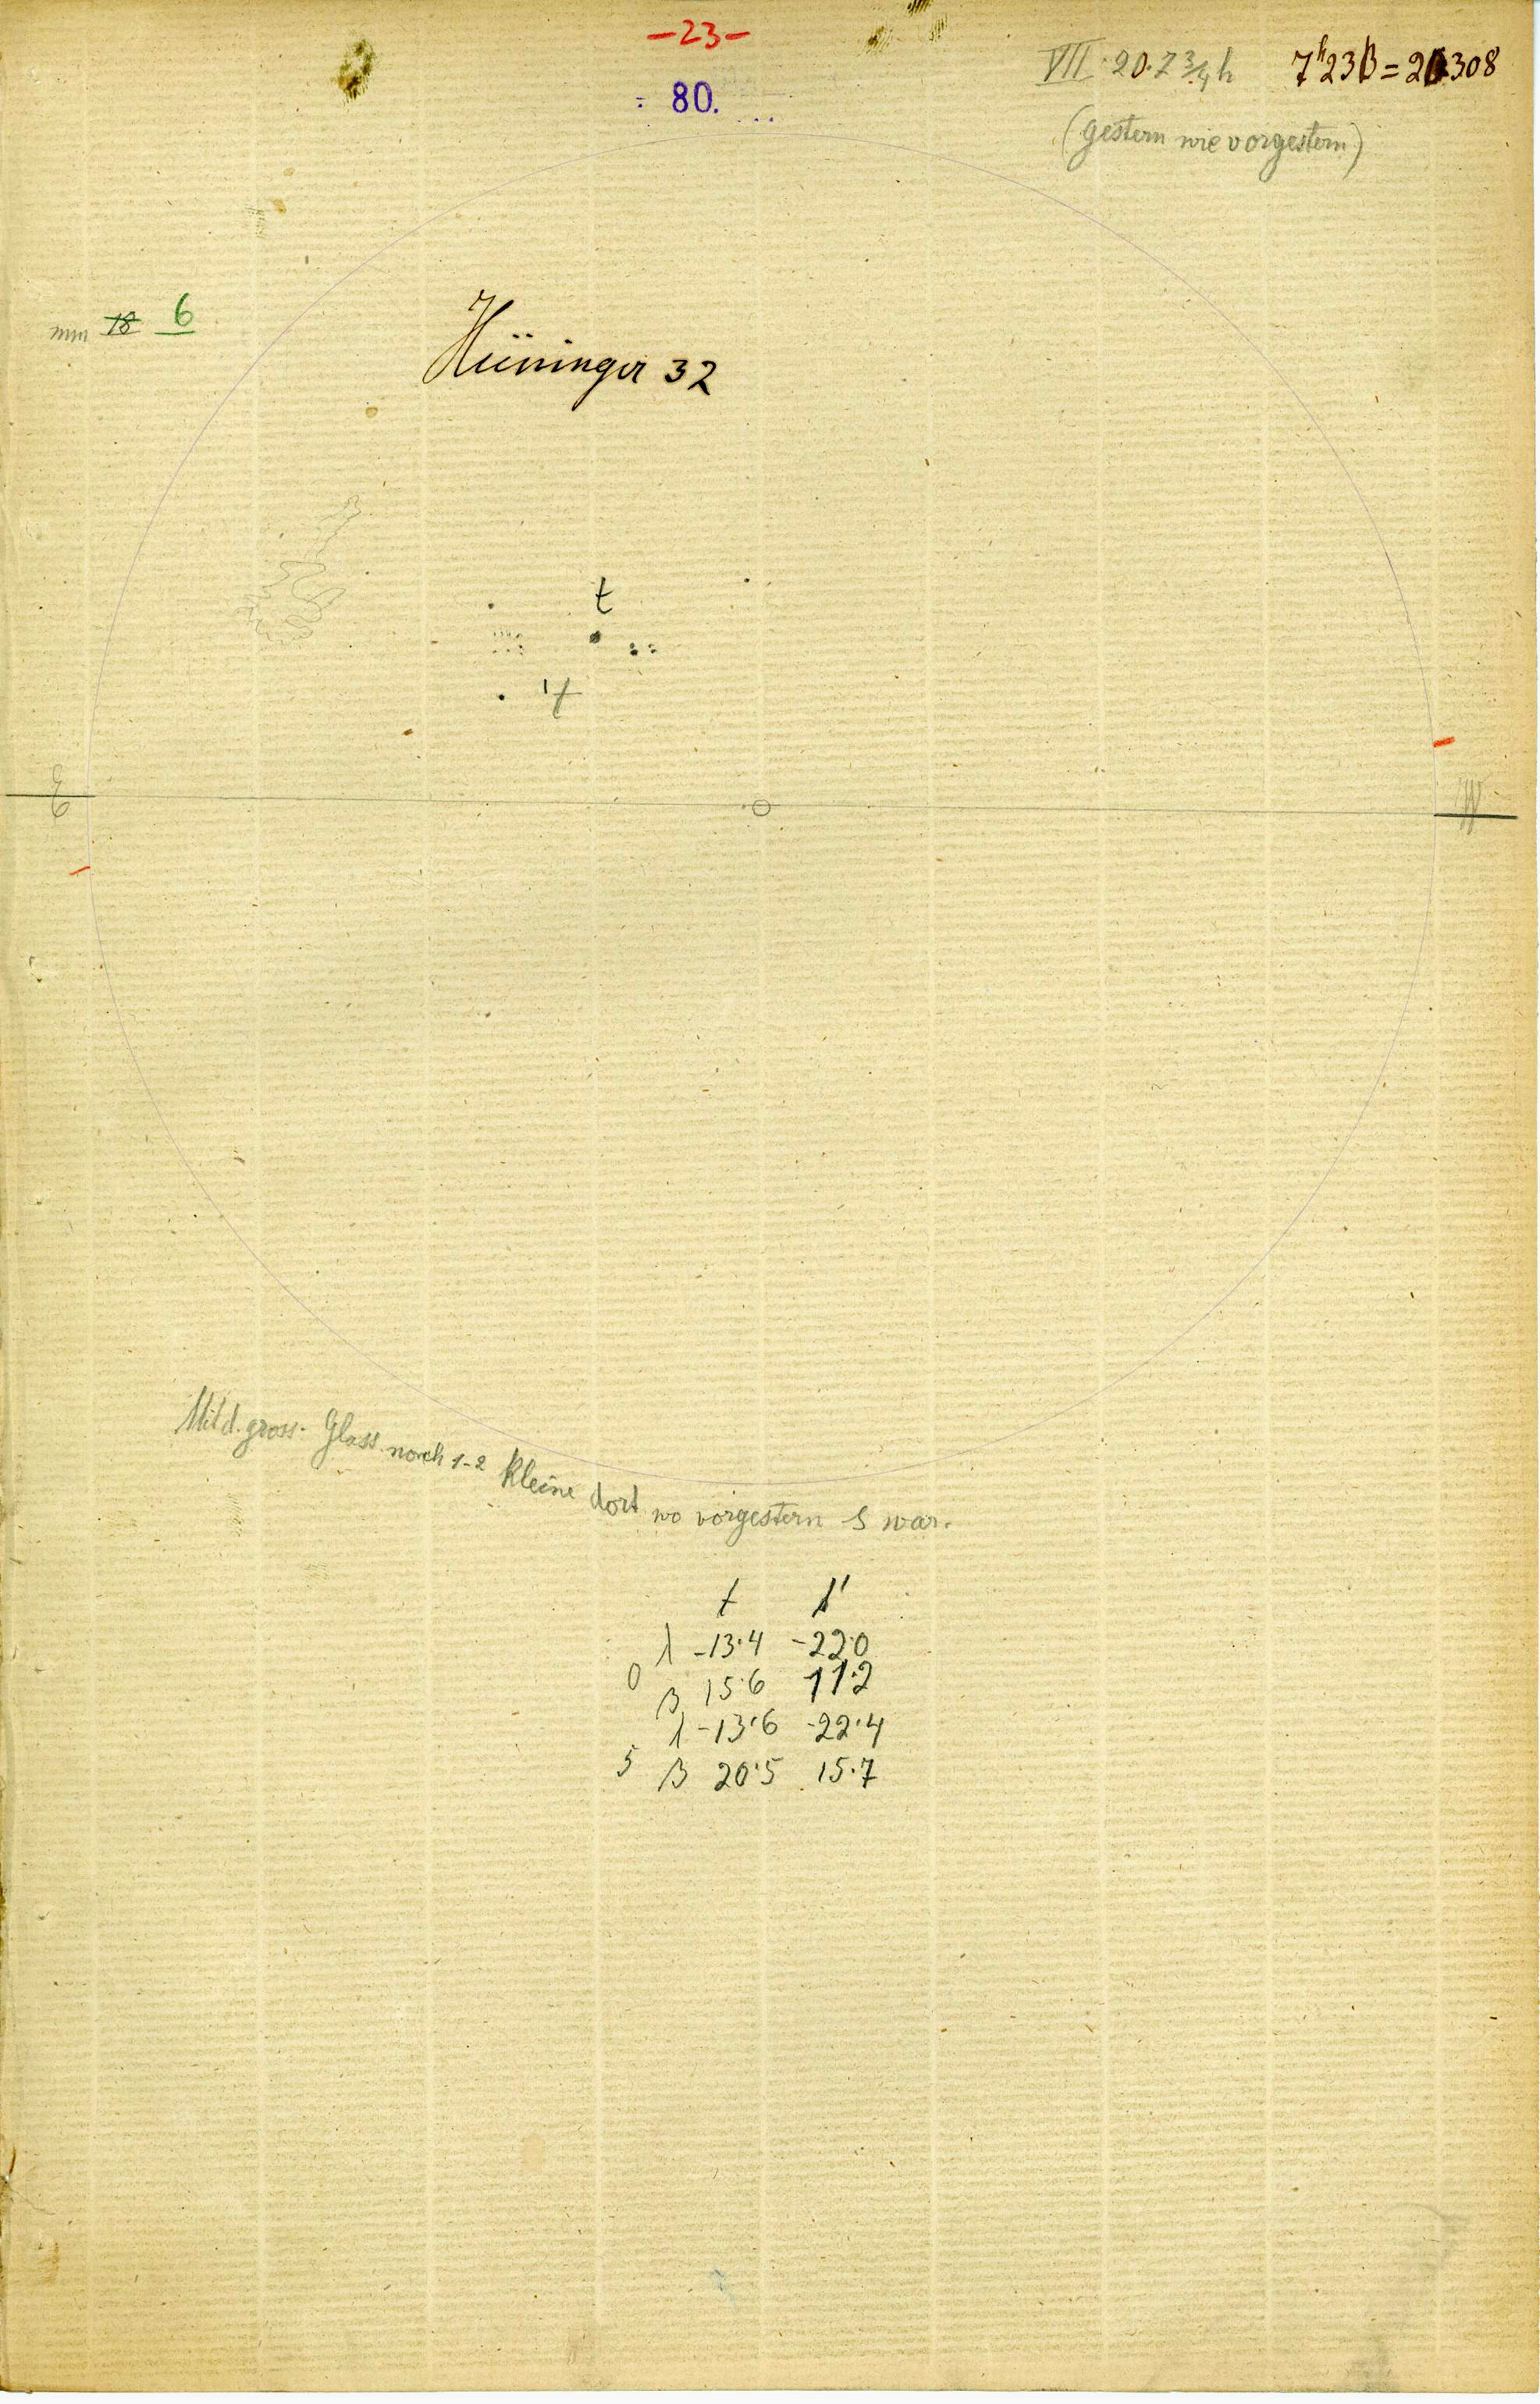 -23-
80.
VII. 20. 7 3/4 h 7h23 B = 20308
(gestern wie vorgestern)
mm 18 6
Hüninger 32
t
't
E W
Mit d. gross. Glass noch 1-2 kleine dort wo vorgestern s war.
t t'
λ -13.4 -22.0
0
β 15.6 11.2
λ -13.6 -22.4
5 β 20.5 15.7